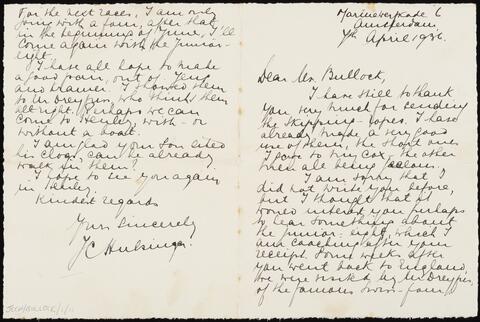 Marinewerkade 6
Amsterdam
7th April 1936.
Dear Mr. Bullock,
I have still to thank
you very much for sending
the skipping-ropes. I have
already made a very good
use of them, the short ones
I gave to my cox, the other
when all being
I am sorry that I
did not write you before,
but I thought that it
would interest you perhaps
to hear something about
the junior-eight, which I
am coaching after your
receipt. Some weeks after
you went back to England,
we were visited by Mr Dreyfus,
of the famous swiss-four,
For the next races, I am only
going with a four, after that
in the beginning of June, I'll
come again with the junior-
eight.
I have all hope to make
a good pair, out of Teng
and Kramer. I showed them
to Mr Dreyfus, who thinks them
allright. Perhaps we can
come to Henley, with- or
without a boat.
I am glad your son liked
his clogs, can he already
walk in them?
I hope to see you again
in Henley.
Kindest regards
Yours Sincerely
JC Huisinga